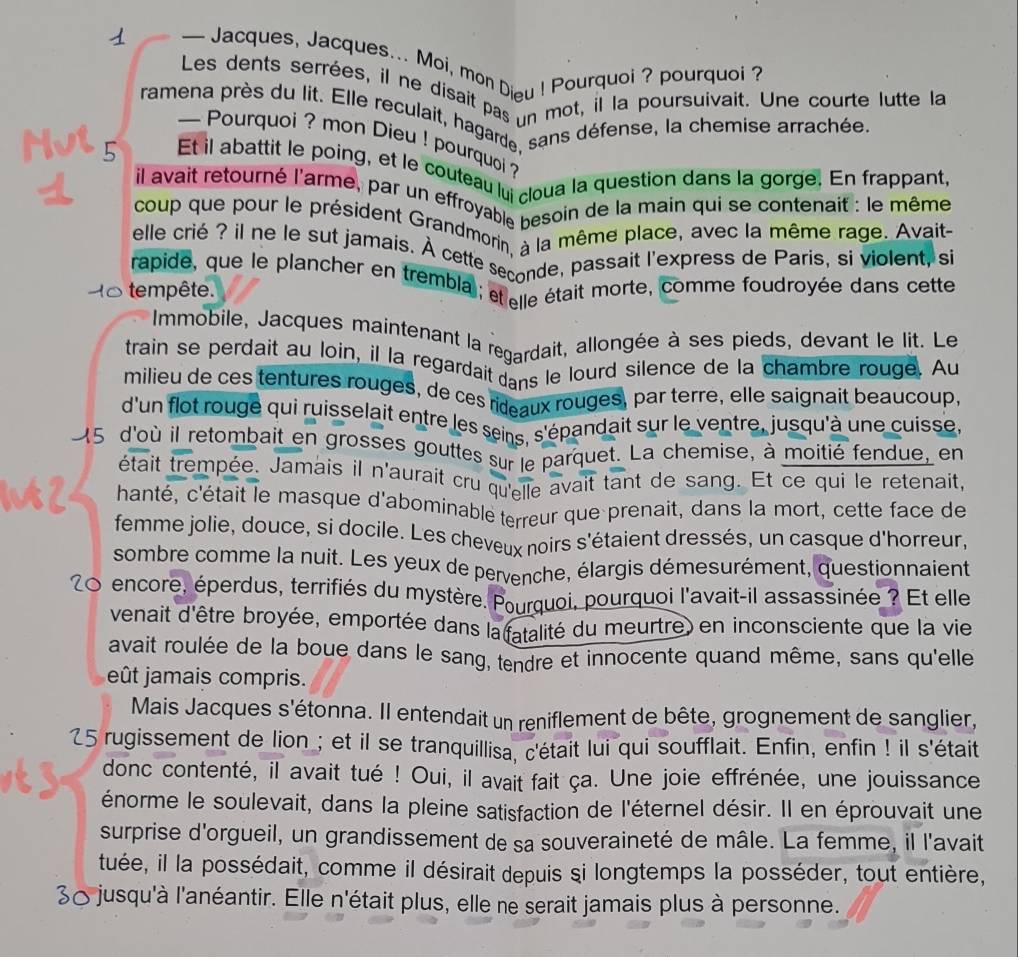 1 — Jacques, Jacques... Moi, mon Dieu ! Pourquoi ? pourquoi ?
Les dents serrées, il ne disait pas un mot, il la poursuivait. Une courte lutte la
ramena près du lit. Elle reculait, hagarde, sans défense, la chemise arrachée.
— Pourquoi ? mon Dieu ! pourquoi ?
Mvt 1
5 Et il abattit le poing, et le couteau lui cloua la question dans la gorge. En frappant,
il avait retourné l'arme, par un effroyable besoin de la main qui se contenait : le même
coup que pour le président Grandmorin, à la même place, avec la même rage. Avait-
elle crié ? il ne le sut jamais. À cette seconde, passait l'express de Paris, si violent, si
rapide, que le plancher en trembla ; et elle était morte, comme foudroyée dans cette
10 tempête. //
Immobile, Jacques maintenant la regardait, allongée à ses pieds, devant le lit. Le
train se perdait au loin, il la regardait dans le lourd silence de la chambre rouge. Au
milieu de ces tentures rouges, de ces rideaux rouges, par terre, elle saignait beaucoup,
d'un flot rouge qui ruisselait entre les seins, s'épandait sur le ventre, jusqu'à une cuisse,
15 d'où il retombait en grosses gouttes sur le parquet. La chemise, à moitié fendue, en
était trempée. Jamais il n'aurait cru qu'elle avait tant de sang. Et ce qui le retenait,
hanté, c'était le masque d'abominable terreur que prenait, dans la mort, cette face de
femme jolie, douce, si docile. Les cheveux noirs s'étaient dressés, un casque d'horreur,
sombre comme la nuit. Les yeux de pervenche, élargis démesurément, questionnaient
20 encore, éperdus, terrifiés du mystère. Pourquoi, pourquoi l'avait-il assassinée ? Et elle
venait d'être broyée, emportée dans la fatalité du meurtre, en inconsciente que la vie
avait roulée de la boue dans le sang, tendre et innocente quand même, sans qu'elle
eût jamais compris. //
Mais Jacques s'étonna. Il entendait un reniflement de bête, grognement de sanglier,
25 rugissement de lion ; et il se tranquillisa, c'était lui qui soufflait. Enfin, enfin ! il s'était
donc contenté, il avait tué ! Oui, il avait fait ça. Une joie effrénée, une jouissance
énorme le soulevait, dans la pleine satisfaction de l'éternel désir. Il en éprouvait une
surprise d'orgueil, un grandissement de sa souveraineté de mâle. La femme, il l'avait
tuée, il la possédait, comme il désirait depuis si longtemps la posséder, tout entière,
30 jusqu'à l'anéantir. Elle n'était plus, elle ne serait jamais plus à personne. //